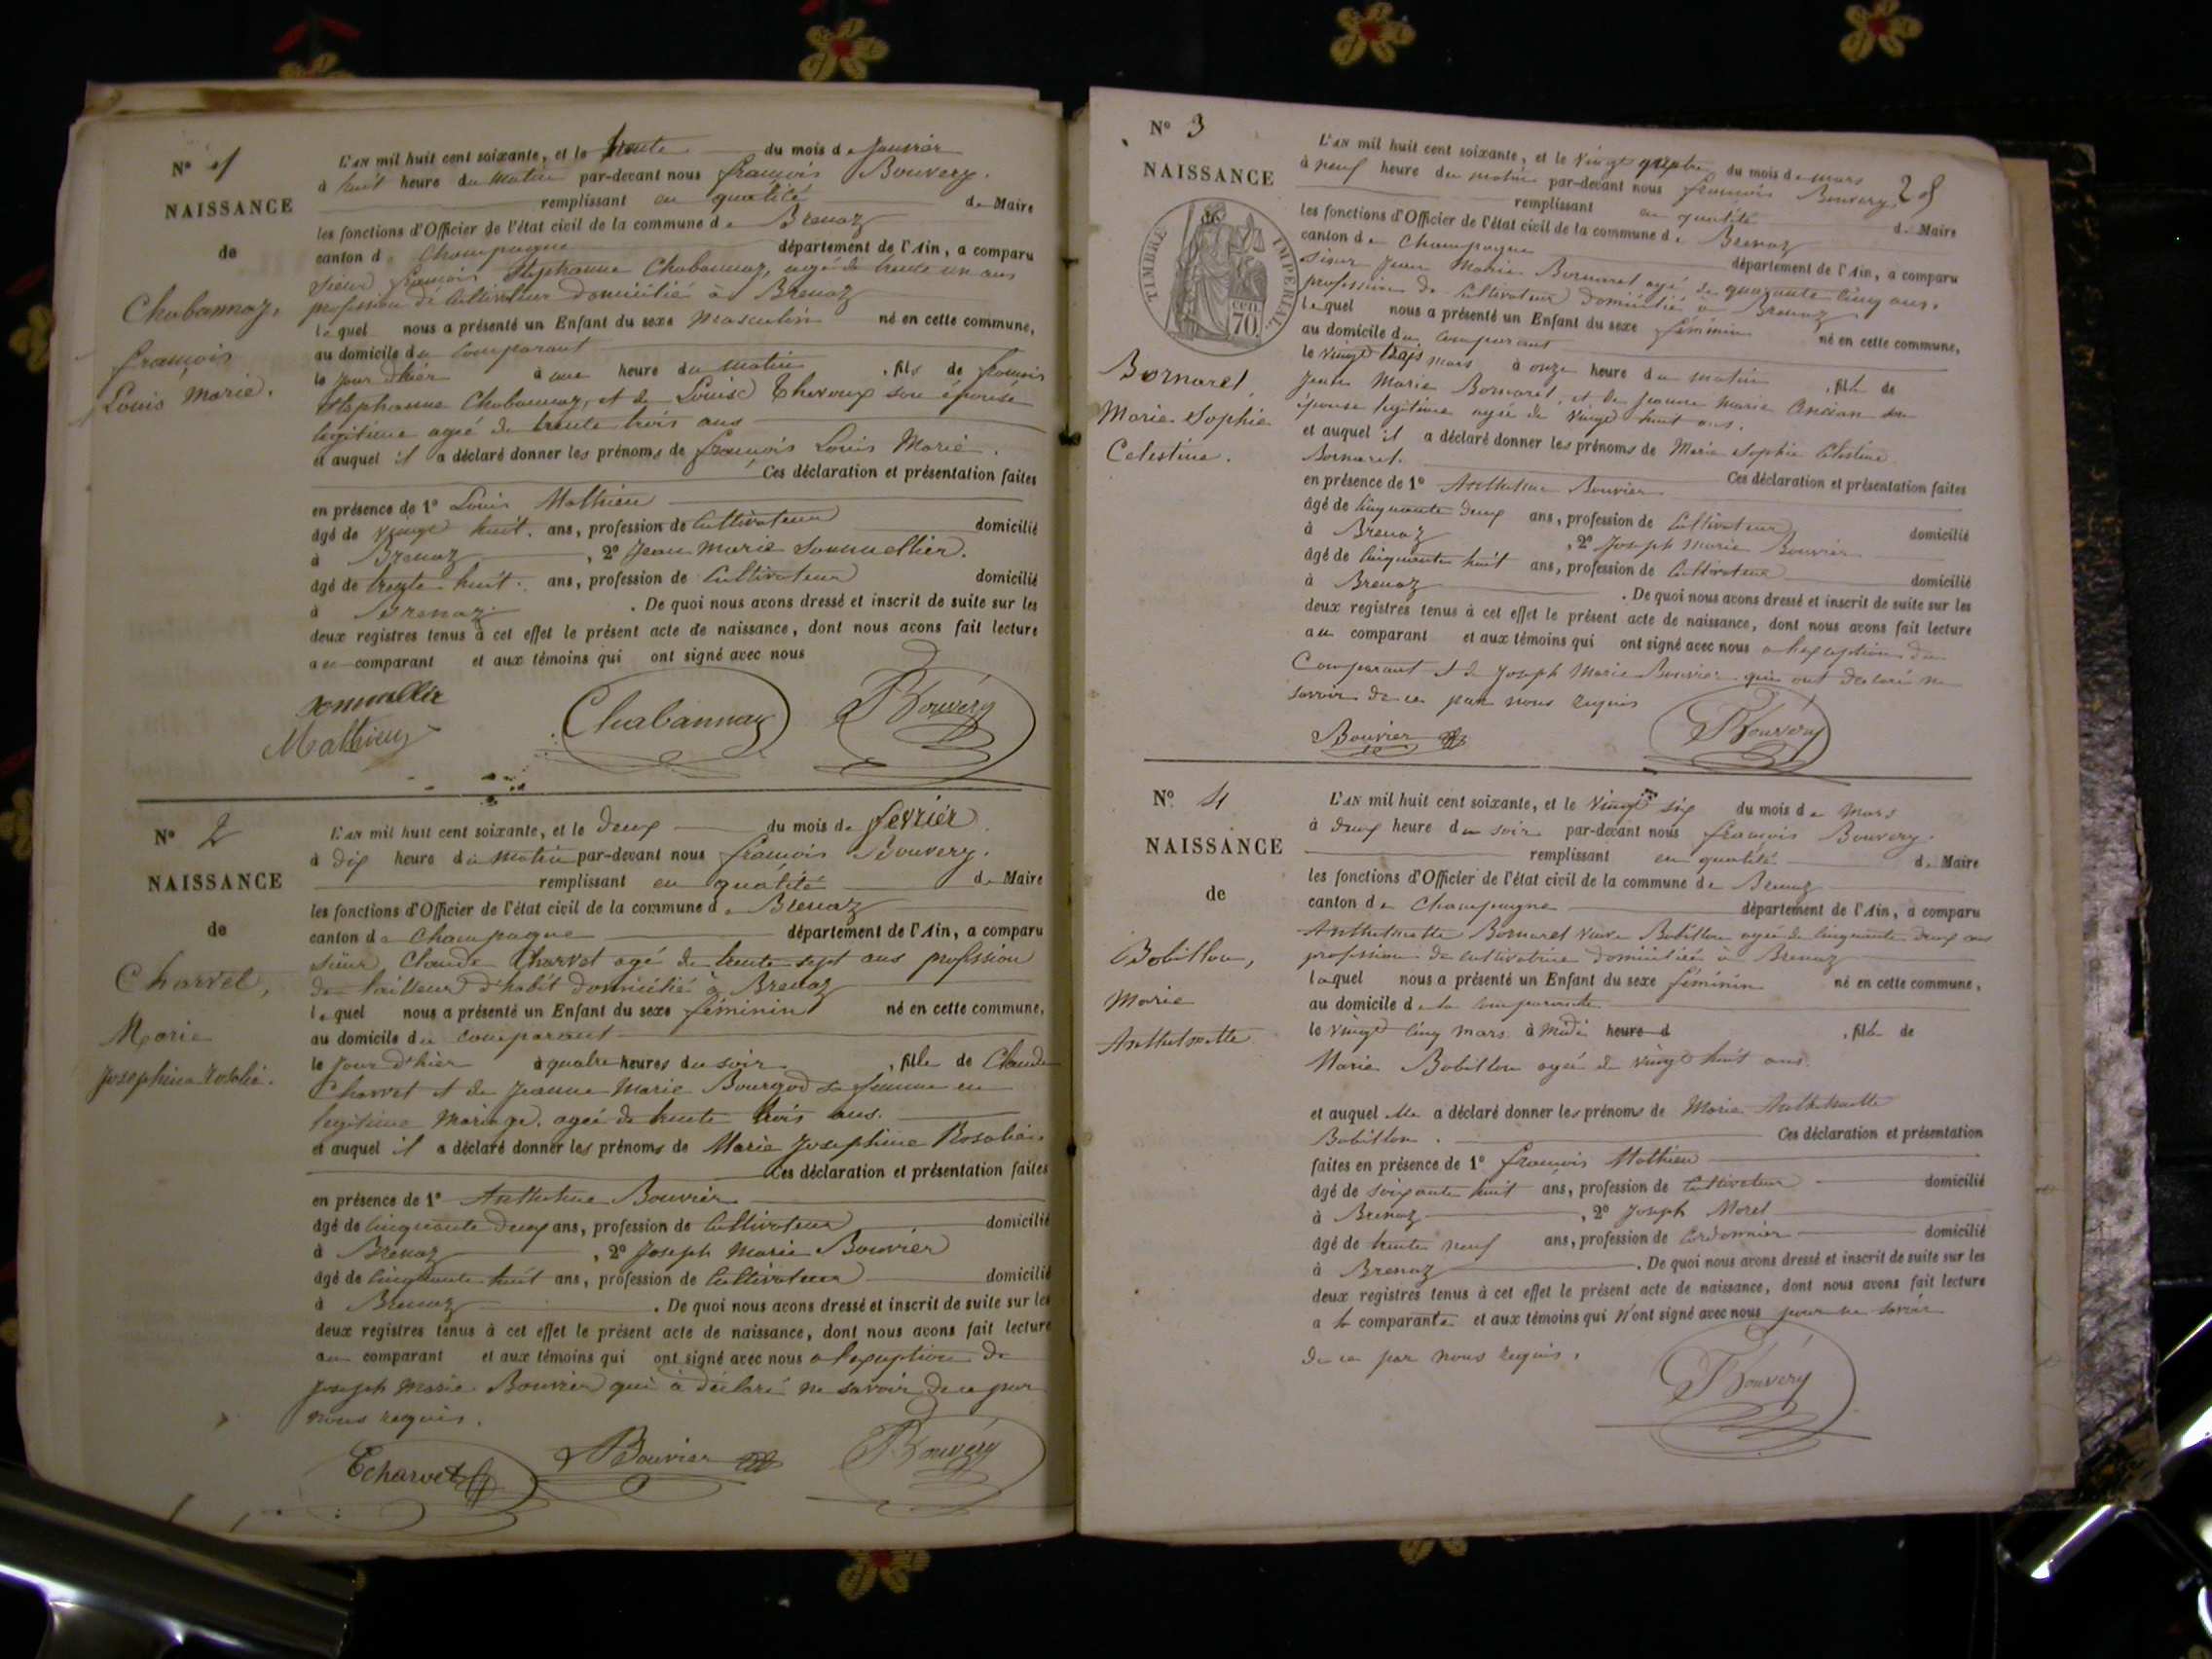 N° 1
NAISSANCE
de
Chabannaz,
françois
Louis Marie.
L'AN mil huit cent soixante, et le trente du mois de Janvier
à huit heure du Matin par-devant nous françois Bouvery.
remplissant en qualité de Maire
les fonctions d'Officier de l'état civil de la commune de Brenaz
canton de Champagne département de l'Ain, a comparu
sieur françois Stephanne Chabannaz, agé de trente un ans
profession de Cultivateur domicilié à Brenaz
lequel nous a présenté un Enfant du sexe Masculin né en cette commune,
au domicile du Comparant
le jour d'hier à une heure du matin, fils de francois
Stephanne Chabannaz, et de Louise Thevoux son épouse
légitime agée de trente trois ans
et auquel il a déclaré donner les prénoms de françois Louis Marie.
Ces déclaration et présentation faites
en présence de 1° Louis Mathieu
âgé de vingt huit. ans, profession de Cultivateur domicilié
à Brenaz, 2° Jean Marie Sonmellier.
âgé de trente huit. ans, profession de Cultivateur domicilié
à Brenaz. De quoi nous avons dressé et inscrit de suite sur les
deux registres tenus à cet effet le présent acte de naissance, dont nous avons fait lecture
au comparant et aux témoins qui ont signé avec nous
Mathieu Chabannaz Bouvery
N° 2
NAISSANCE
de
Charvet,
Marie
Josephine Rosalie.
L'AN mil huit cent soixante, et le deux du mois de fevrier
à dix heure du Matin par-devant nous françois Bouvery.
remplissant en qualité de Maire
les fonctions d'Officier de l'état civil de la commune de Brenaz
canton de Champagne département de l'Ain, a comparu
sieur Claude Charvet agé de trente sept ans profession
de tailleur d'habit domicilié à Brenaz
lequel nous a présenté un Enfant du sexe féminin né en cette commune,
au domicile du comparant
le jour d'hier à quatre heures du soir, fille de Claude
Charvet et de Jeanne Marie Bourgod sa femme en
legitime mariage. agée de trente trois ans.
et auquel il a déclaré donner les prénoms de Marie Josephine Rosalie.
Ces déclaration et présentation faites
en présence de 1° Anthelme Bouvier
âgé de Cinquante deux ans, profession de Cultivateur domicilié
à Brenaz, 2° Joseph Marie Bouvier
âgé de Cinquante huit ans, profession de Cultivateur domicilié
à Brenaz. De quoi nous avons dressé et inscrit de suite sur les
deux registres tenus à cet effet le présent acte de naissance, dont nous avons fait lecture
au comparant et aux témoins qui ont signé avec nous a l'exception de
Joseph Marie Bouvier qui à déclaré ne savoir de ce par
nous requis.
Charvet Bouvier Bouvery
N° 3
28
NAISSANCE
de
TIMBRE IMPERIAL
CEN. 70.
Bornaret,
Marie Sophie
Celestine.
L'AN mil huit cent soixante, et le vingt quatre du mois de mars
à neuf heure du matin par-devant nous françois Bouvery.
remplissant en qualité de Maire
les fonctions d'Officier de l'état civil de la commune de Brenaz
canton de Champagne département de l'Ain, a comparu
sieur Jean Marie Bornaret agé de quarante cinq ans.
profession de Cultivateur domicilié à Brenaz
lequel nous a présenté un Enfant du sexe féminin né en cette commune,
au domicile du Comparant
le vingt trois mars à onze heure du matin, fille de
Jean Marie Bornaret, et de Jeanne Marie Ancian son
épouse légitime agée de vingt huit ans.
et auquel il a déclaré donner les prénoms de Marie Sophie Celestine
Bornaret. Ces déclaration et présentation faites
en présence de 1° Anthelme Bouvier
âgé de Cinquante deux ans, profession de Cultivateur domicilié
à Brenaz, 2° Joseph Marie Bouvier
âgé de Cinquante huit ans, profession de Cultivateur domicilié
à Brenaz. De quoi nous avons dressé et inscrit de suite sur les
deux registres tenus à cet effet le présent acte de naissance, dont nous avons fait lecture
au comparant et aux témoins qui ont signé avec nous a l'exception du
Comparant et de Joseph Marie Bouvier qui ont declaré ne
savoir de ce par nous requis
Bouvier Bouvery
N° 4
NAISSANCE
de
Bobillon,
Marie
Anthelmette
L'AN mil huit cent soixante, et le vingt six du mois de Mars
à deux heure du soir par-devant nous françois Bouvery.
remplissant en qualité de Maire
les fonctions d'Officier de l'état civil de la commune de Brenaz
canton de Champagne département de l'Ain, a comparu
Anthelmette Bornaret veuve Bobillon agée de Cinquante deux ans
profession de cultivatrice domiciliée à Brenaz
laquel nous a présenté un Enfant du sexe féminin né en cette commune,
au domicile de la comparante
le vingt cinq mars à midi heure d, fille de
Marie Bobillon agée de vingt huit ans.
et auquel elle a déclaré donner les prénoms de Marie Anthelmette
Bobillon. Ces déclaration et présentation
faites en présence de 1° françois Mathieu
âgé de soixante huit ans, profession de Cultivateur domicilié
à Brenaz, 2° Joseph Morel
âgé de trente neuf ans, profession de Cordonnier domicilié
à Brenaz. De quoi nous avons dressé et inscrit de suite sur les
deux registres tenus à cet effet le présent acte de naissance, dont nous avons fait lecture
a la comparante et aux témoins qui n'ont signé avec nous pour ne savoir
de ce par nous requis.
Bouvery